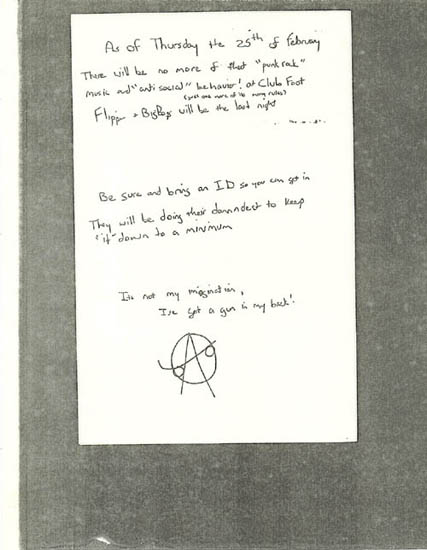 As of Thursday the 25th of February
There will be no more of that "punk rock"
music and "anti social" behavior! at Club Foot
(just one more of its many rules)
Flipper + Big Boys will be the last night
Be sure and bring an ID so you can get in
They will be doing their damndest to keep
"it" down to a minimum
Its not my imagination,
I've got a gun in my back!